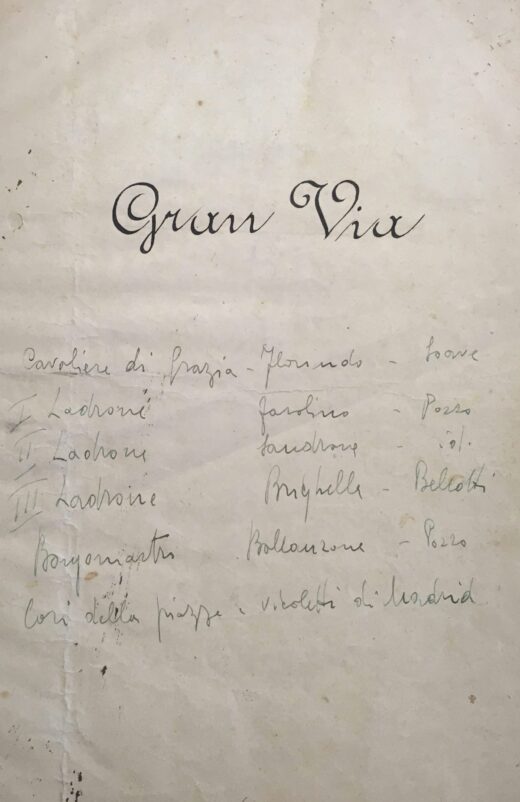 Gran Via
Cavaliere di Grazia - Florindo - Soave
I Ladrone Fasolino - Pozzo
II Ladrone Sandrone - id.
III Ladrone Brighella - Belcotti
Borgomastro Ballanzone - Pozzo
Cori della piazze e vicoletti di Madrid